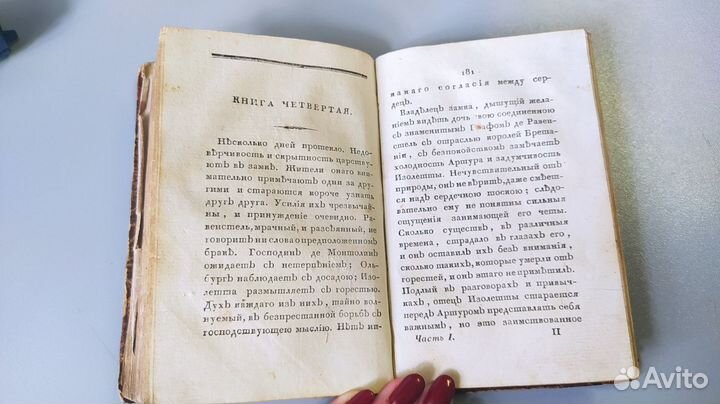 КНИГА ЧЕТВЕРТАЯ.
Нѣсколько дней протекло. Недо-
вѣрчивость и скрытность царству-
ютъ въ замкѣ. Жители онаго вни-
мательно примѣчаютъ одни за дру-
гими и стараются короче узнать
другъ друга. Усилія ихъ чрезвычай-
ны, и принужденіе очевидно. Ра-
венстель, мрачный, и разсѣянный, не
говоритъ ни слова о предположенномъ
бракѣ. Господинъ де Монтоланъ
ожидаетъ съ нетерпѣніемъ; Оль-
бургъ наблюдаетъ съ досадою; Изо-
летта размышляетъ съ горестью.
Духъ каждаго изъ нихъ, тайно вол-
нуемый, въ безпрестанной борьбѣ съ
господствующею мыслію. Нѣтъ ни-
181
какаго согласія между сер-
децъ.
Владѣлецъ замка, дышущій жела-
ніемъ видѣть дочь свою соединенною
съ знаменитымъ Графомъ де Равен-
стель съ отраслью королей Брета-
ніи, съ безпокойствомъ замѣчаетъ
холодность Артура и задумчивость
Изолетты. Нечувствительный отъ
природы, онъ не вѣритъ, даже смѣет-
ся надъ сердечною тоскою; слѣдо-
вательно ему не понятны сильныя
ощущенія занимающей его четы.
Сколько существъ, въ различныя
времена, страдало въ глазахъ его,
и онъ оставилъ ихъ безъ вниманія,
сколько такихъ, которые умерли отъ
горестей, и онъ этаго не примѣтилъ.
Подлый въ разговорахъ и привыч-
кахъ, отецъ Изолетты старается
передъ Артуромъ представлять себя
важнымъ, но это заимствованное
Часть I. II
Avito